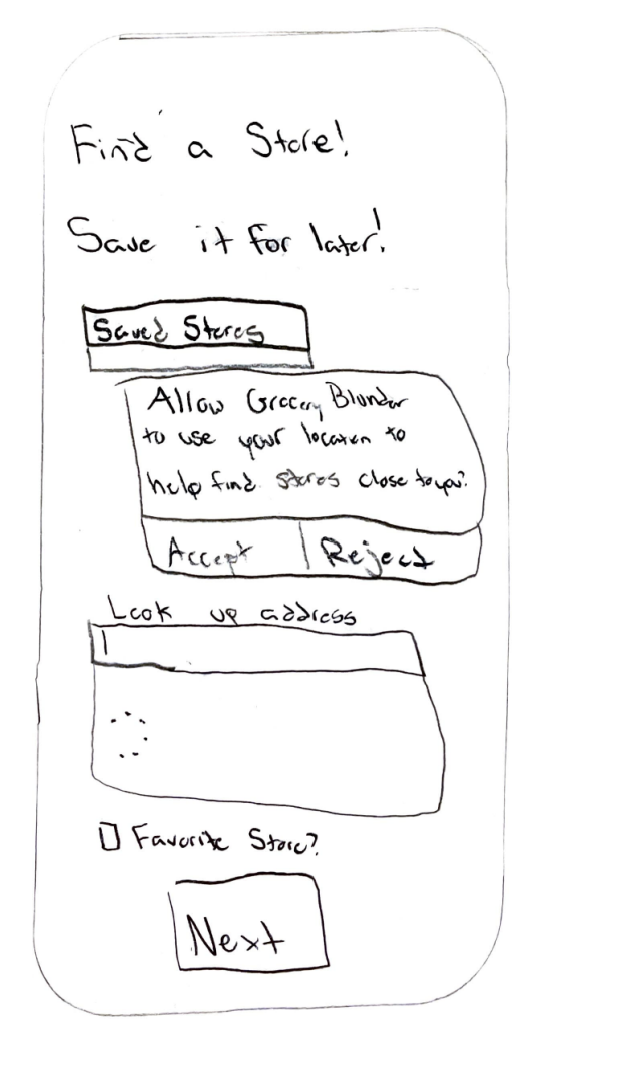 Find a Store!
Save it for later!
Saved Stores
Allow Grocery Blunder
to use your location to
help find stores close to you?
Accept
Reject
Look up address
Favorite Store?
Next